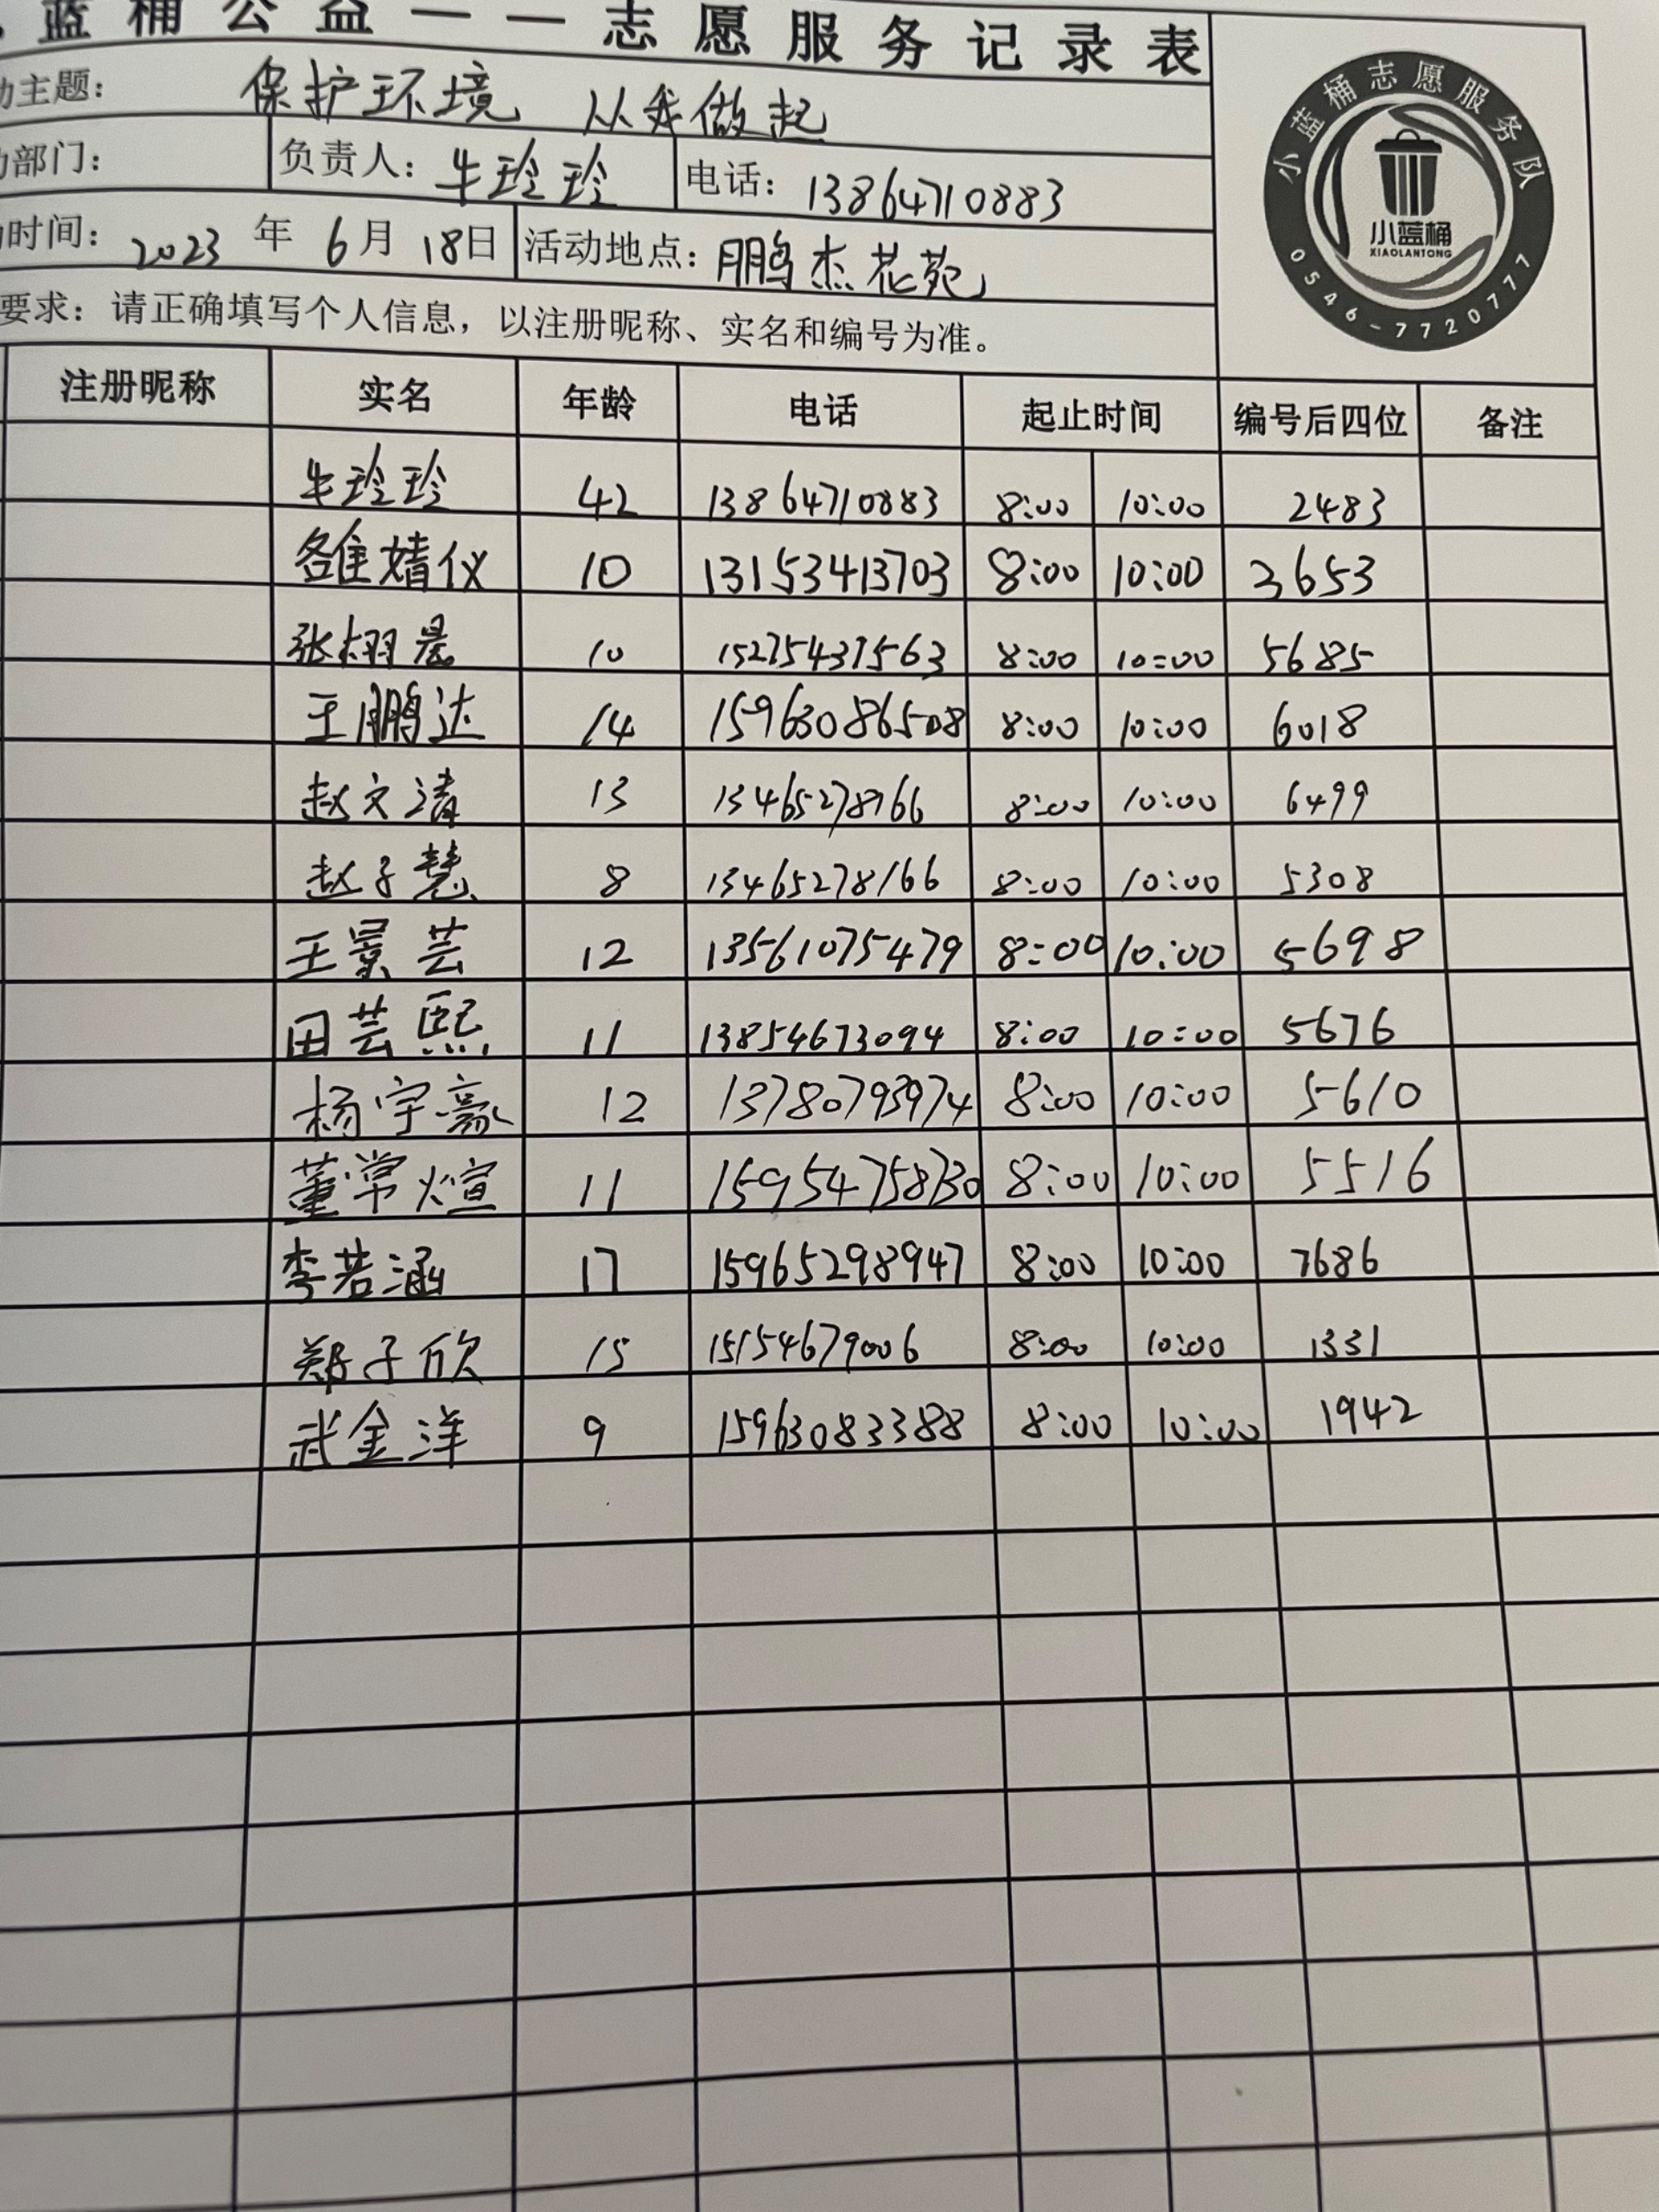 蓝桶公益——志愿服务记录表
小蓝桶志愿服务队
小蓝桶
XIAOLANTONG
0546-7720777
动主题： 保护环境 从我做起
动部门： 负责人：牛玲玲 电话：13864710883
动时间：2023年6月18日 活动地点：鹏杰花苑
要求：请正确填写个人信息，以注册昵称、实名和编号为准。
注册昵称 实名 年龄 电话 起止时间 编号后四位 备注
牛玲玲 42 13864710883 8:00 10:00 2483
雒婧仪 10 13153413703 8:00 10:00 3653
张栩晨 10 8:00 10:00 5685
王鹏达 14 15963086508 8:00 10:00 6018
赵文清 13 13465278166 8:00 10:00 6499
赵子慧 8 13465278166 8:00 10:00 5308
王景芸 12 13561075479 8:00 10:00 5698
田芸熙 11 13854673094 8:00 10:00 5676
杨宇豪 12 13780793974 8:00 10:00 5610
董常煊 11 15954758730 8:00 10:00 5516
李若涵 17 15965298947 8:00 10:00 7686
郑子欣 15 15154679006 8:00 10:00 1331
武金洋 9 15963083388 8:00 10:00 1942